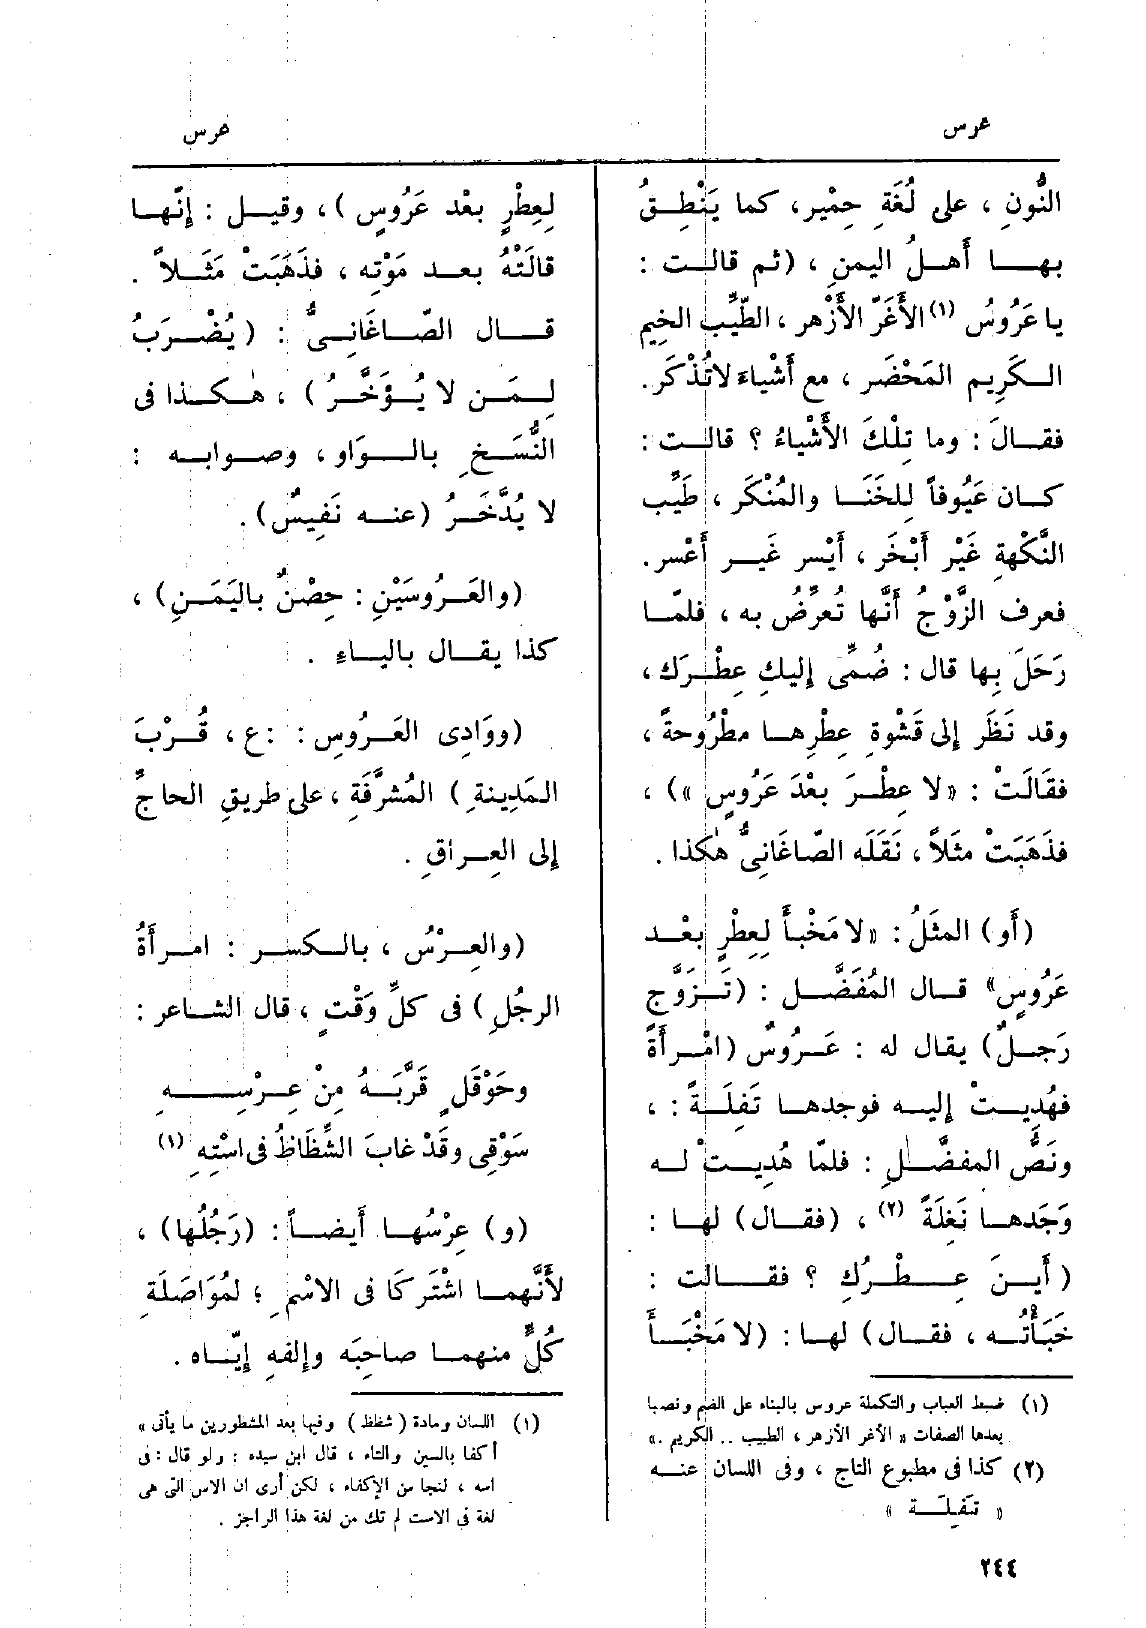 عرس
النُّونِ ، على لُغَةِ حِمْير، كما يَنْطِقُ
بها أَهلُ اليمنِ ، (ثم قالت :
يا عَرُوسُ (١) الأَغَرّ الأَزْهر ، الطَّيِّب الخِيمِ
الكَرِيم المَحْضَر ، مع أَشْياءَ لاتُذْكَر .
فقالَ : وما تِلْكَ الأَشْياءُ ؟ قالت :
كان عَيُوفاً لِلخَنَا والمُنْكَر ، طَيِّب
النَّكْهةِ غَيْر أَبْخَر ، أَيْسر غَير أَعْسر .
فعرف الزَّوْجُ أَنَّها تُعرِّضُ به ، فلمّا
رَحَلَ بِها قال : ضُمِّى إِليكِ عِطْرَك ،
وقد نَظَر إِلى قَشْوةِ عِطْرِها مطْرُوحةً ،
فقَالَتْ : « لا عِطْرَ بعْدَ عَرُوسٍ ») ،
فذَهَبَتْ مثَلاً ، نَقَلَه الصّاغَانِىُّ هٰكذا .
(أَو) المثَلُ : « لا مَخْبأَ لِعِطْرٍ بعْد
عَرُوسٍ» قال المُفَضَّل : (تَزوَّج
رَجلٌ) يقال له : عَرُوسٌ (امْرأَةً
فهُدِيتْ إِليه فوجدها تَفِلَةً : ،
ونَصُّ المفضَّلِ : فلمّا هُدِيتْ له
وَجَدها نَغِلَةً (٢) ، (فقال) لها :
(أَين عِطْرُك ؟ فقالت :
خَبأْتُه ، فقال) لها : (لا مَخْبأَ
(١) ضبط العباب والتكملة عروس بالبناء على الضم ونصبا
بعدها الصفات « الأغر الأزهر ، الطيب .. الكريم .»
(٢) كذا فى مطبوع التاج ، وفى اللسان عنه
« تَفِلَة »
٢٤٤
عرس
لِعِطْرٍ بعْد عَرُوسٍ) ، وقيل : إِنّها
قالَتْهُ بعد مَوْتِه ، فذَهَبَتْ مَثَلاً .
قال الصّاغَانِىُّ : (يُضْرَبُ
لِمَن لا يُؤَخَّرُ) ، هٰكذا فى
النُّسَخِ بالوَاو ، وصوابه :
لا يُدَّخَرُ (عنه نَفِيسٌ) .
(والعَرُوسَيْنِ : حِصْنٌ بالِيَمَنِ) ،
كذا يقال بالياءِ .
(ووَادِى العَرُوسِ : :ع ، قُرْبَ
المَدِينةِ) المُشرَّفَةِ ، على طريقِ الحاجِّ
إِلى العِراقِ .
(والعِرْسُ ، بالكسر : امرأَةُ
الرجُلِ) فى كلِّ وَقْتٍ ، قال الشاعر :
وحَوْقَلٍ قَرَّبَهُ مِنْ عِرْسِهِ
سَوْقِى وقَدْ غابَ الشِّظَاظُ فى اسْتِهِ (١)
(و) عِرْسُها أَيضاً : (رَجُلُها) ،
لأَنَّهما اشْتَركَا فى الاسْمِ ؛ لمُوَاصَلَةِ
كُلٍّ منهما صاحِبَه وإِلفِهِ إِيّاه .
(١) اللسان ومادة ( شظظ ) وفيها بعد المشطورين ما يأتى «
أكفا بالسين والتاء ، قال ابن سيده : ولو قال : فى
اسه ، لنجا من الإكفاء ، لكن أرى ان الاس التى هى
لغة فى الاست لم تك من لغة هذا الراجز .